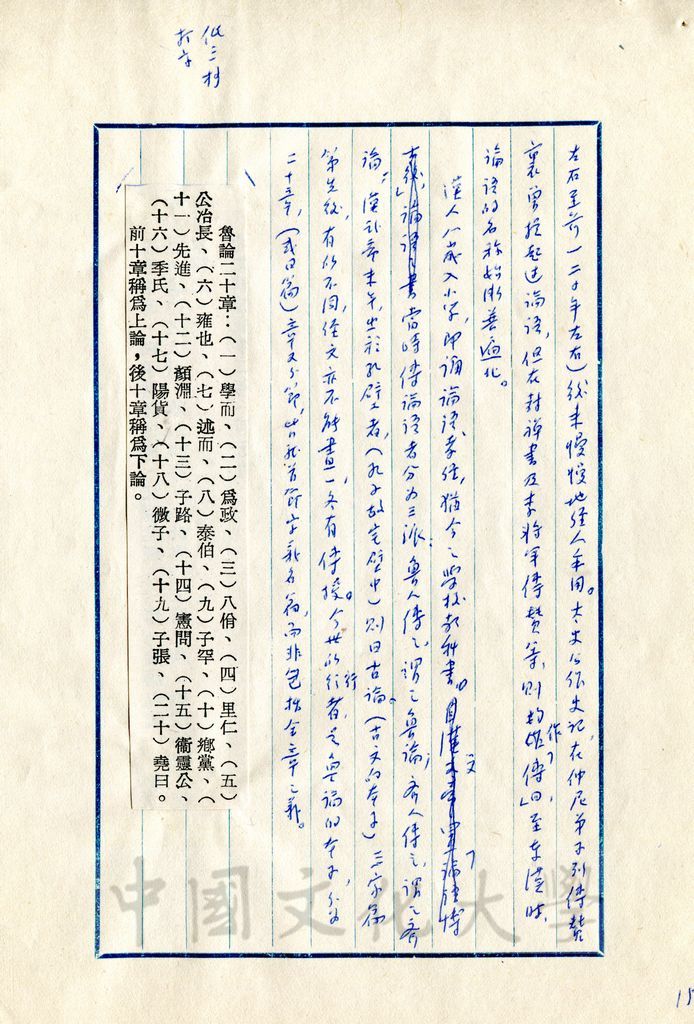 低三格
打字
左右至前一二〇年左右）後來慢慢地經人采用。太史公作史記，在仲尼弟子列傳贊
裏曾提起過論語，但在封禪書及李將軍傳贊等，則均作「傳」曰至東漢時，
論語的名稱始漸普遍化。
漢人八歲入小學，即誦論語孝經，猶今之學校教科書。漢文論語博
當時傳論語者分為三派：魯人傳之，謂之魯論；齊人傳之，謂之齊
論；漢武帝末年，出於孔壁者，（孔子故宅壁中）則曰古論。（古文的本子）三家篇
第先後，有所不同，經文亦不能畫一，各有傳授。今世所行者，是魯論的本子，分為
二十章，（或曰篇）章又分節，皆就首節字義名篇，而非包括全章之義。
魯論二十章：（一）學而、（二）爲政、（三）八佾、（四）里仁、（五）
公冶長、（六）雍也、（七）述而、（八）泰伯、（九）子罕、（十）鄉黨、（
十一）先進、（十二）顏淵、（十三）子路、（十四）憲問、（十五）衞靈公、
（十六）季氏、（十七）陽貨、（十八）微子、（十九）子張、（二十）堯曰。
前十章稱爲上論，後十章稱爲下論。
中國文化大學